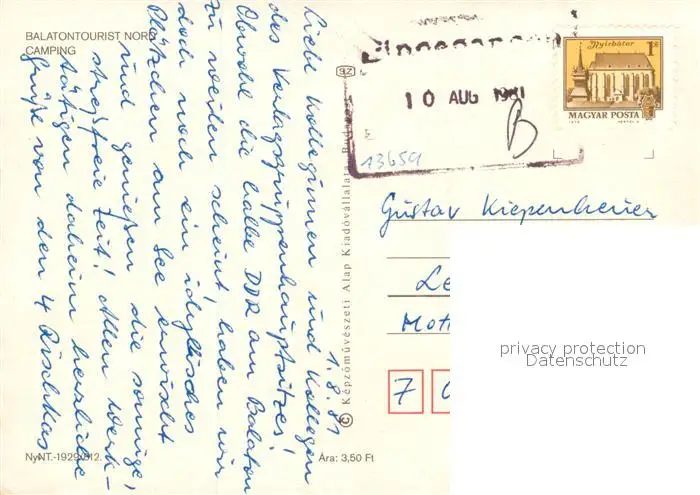 BALATONTOURIST NORD
CAMPING
1.8.81
Liebe Kolleginnen und Kollegen
des Verlagsgruppenhauptsitzes!
Obwohl die halbe DDR am Balaton
zu weilen scheint, haben wir
doch noch ein idyllisches
Plätzchen am See erwischt
und genießen die sonnige,
stressfreie Zeit! Allen werk-
tätigen daheim herzliche
Grüße von den 4
NyNT.-1929/812.
Ára: 3,50 Ft
© Képzőművészeti Alap Kiadóvállalata, Budapest
SZ
10 AUG 1981
B
13659
Nyírbátor
1 Ft
MAGYAR POSTA
Gustav Kiepenheuer
Le
Mot
7 0
privacy protection
Datenschutz